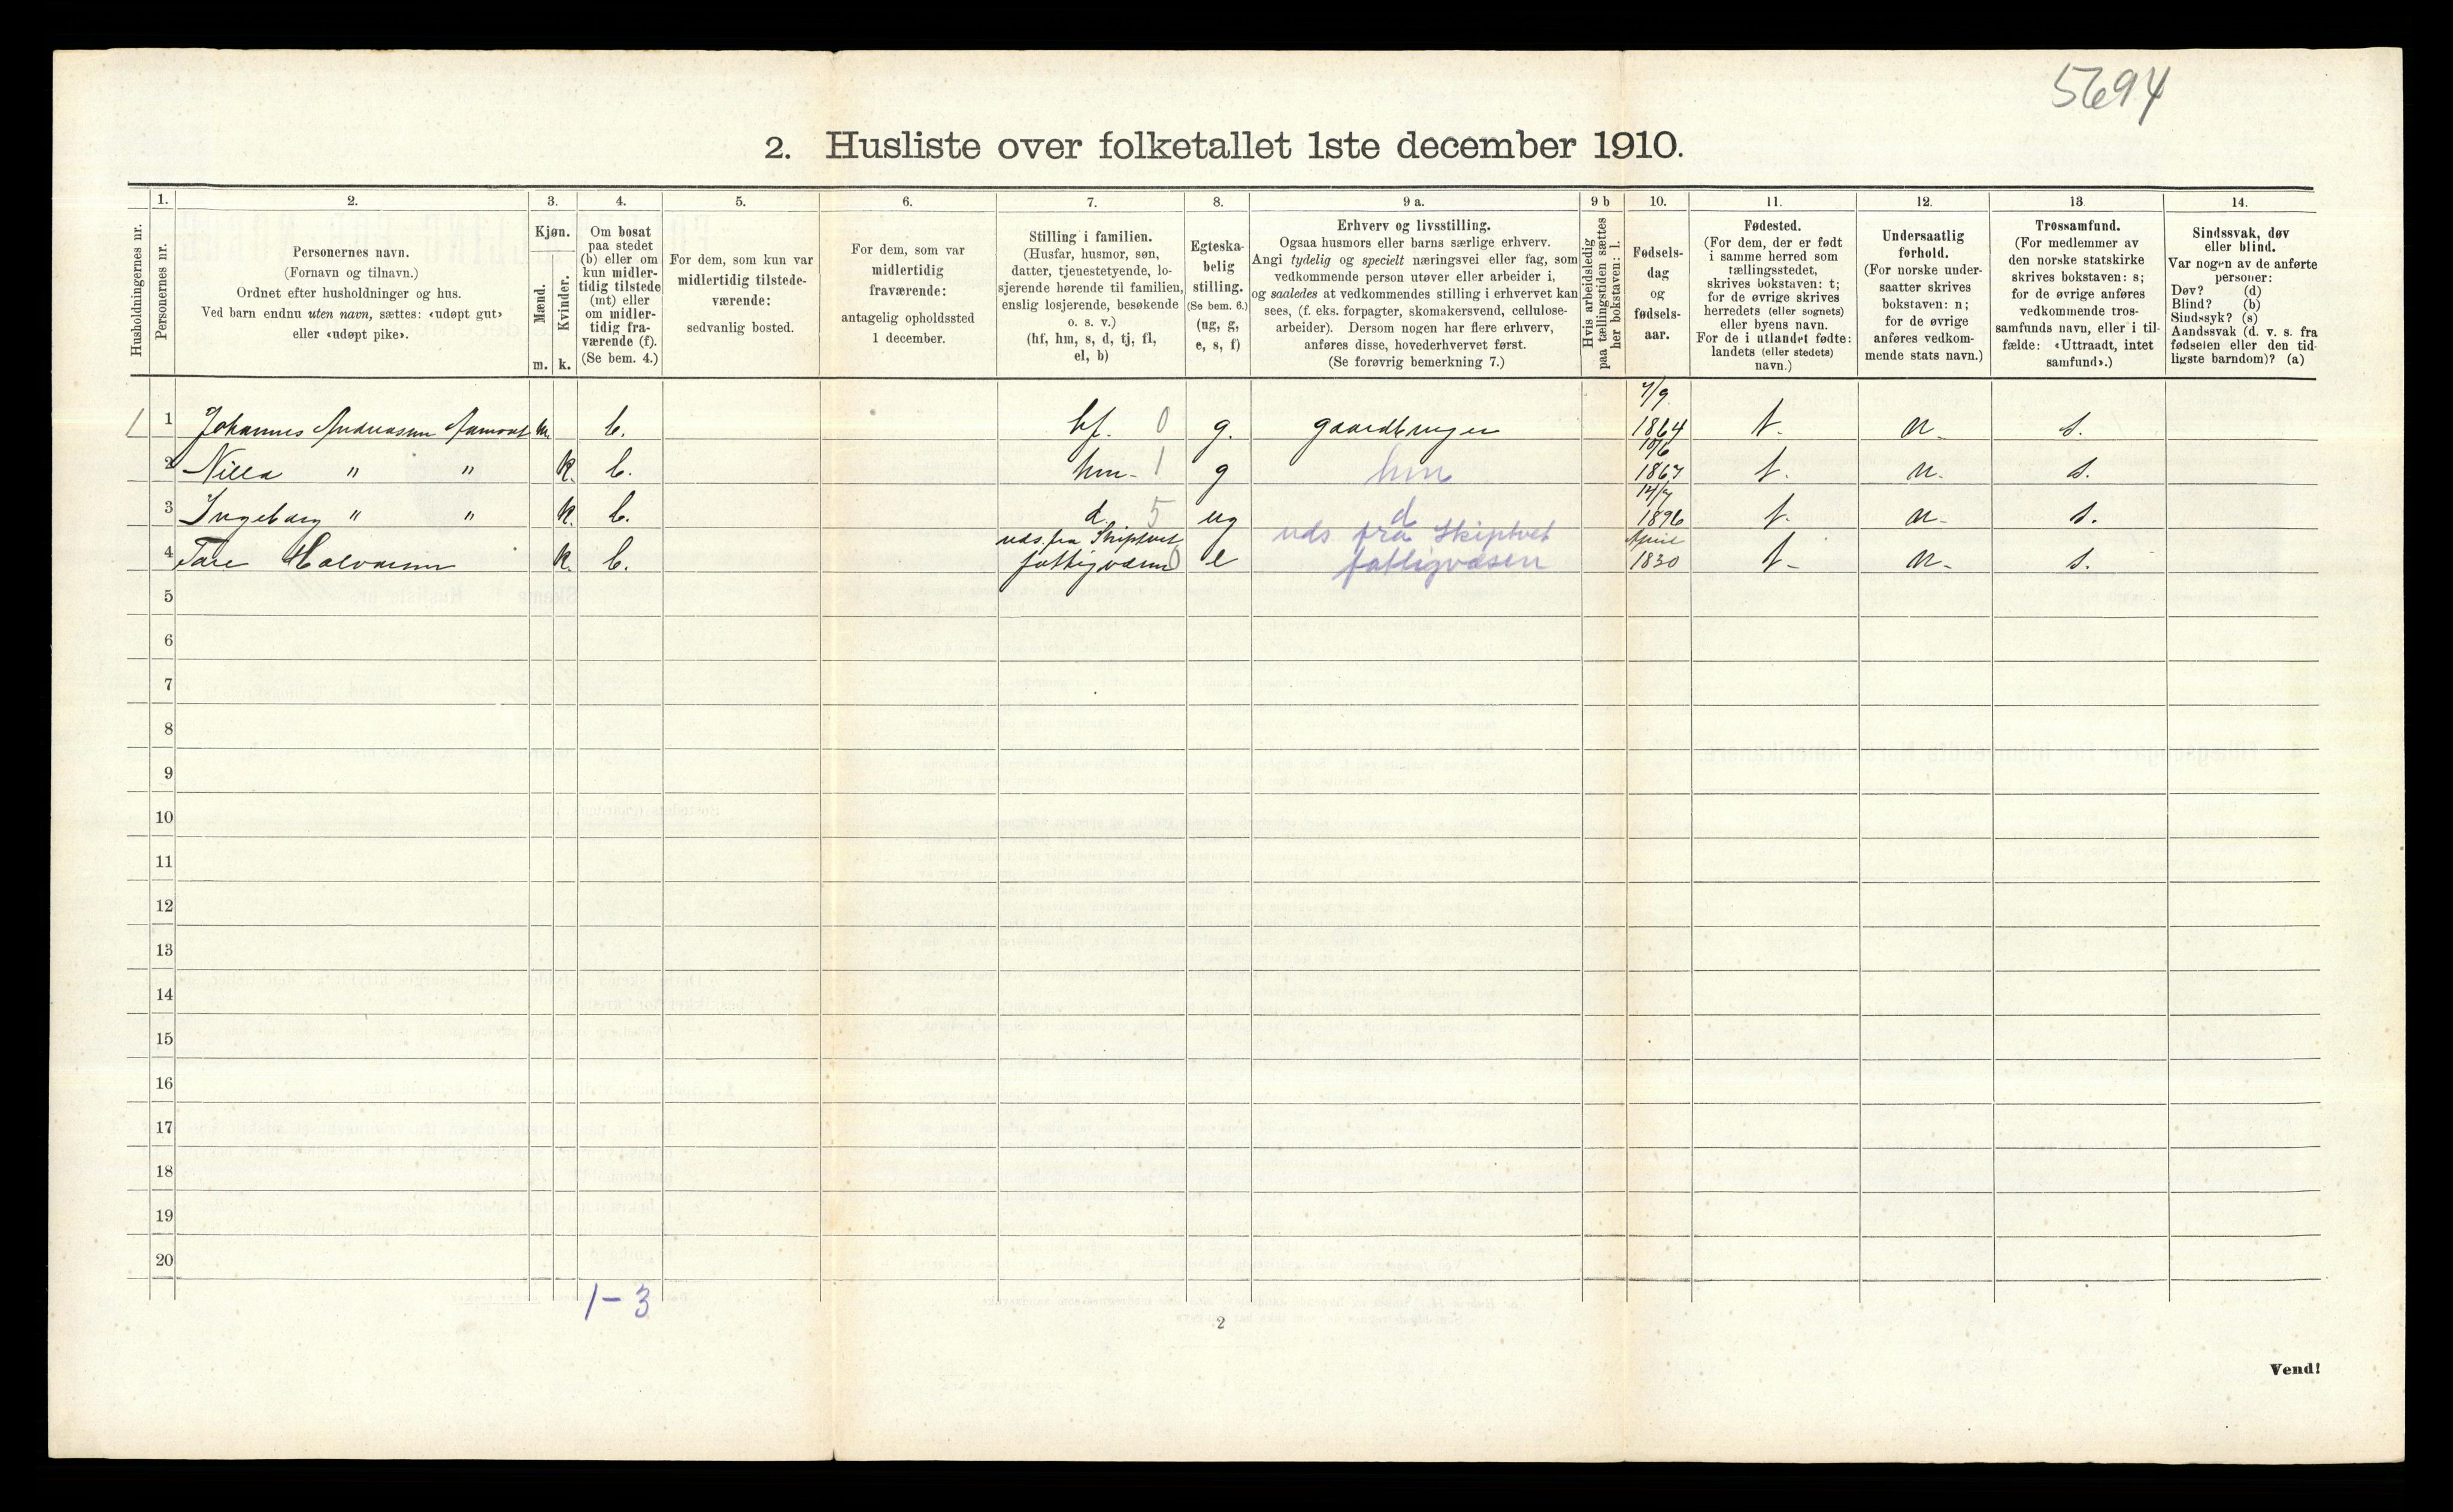 5694
2. Husliste over folketallet 1ste december 1910.
Husholdningernes nr.
1.
Personernes nr.
2.
Personernes navn.
(Fornavn og tilnavn.)
Ordnet efter husholdninger og hus.
Ved barn endnu uten navn, sættes: «udøpt gut»
eller «udøpt pike».
3.
Kjøn.
Mænd.
Kvinder.
m. k.
4.
Om bosat
paa stedet
(b) eller om
kun midler-
tidig tilstede
(mt) eller
om midler-
tidig fra-
værende (f).
(Se bem. 4.)
5.
For dem, som kun var
midlertidig tilstede-
værende:
sedvanlig bosted.
6.
For dem, som var
midlertidig
fraværende:
antagelig opholdssted
1 december.
7.
Stilling i familien.
(Husfar, husmor, søn,
datter, tjenestetyende, lo-
sjerende hørende til familien,
enslig losjerende, besøkende
o. s. v.)
(hf, hm, s, d, tj, fl,
el, b)
8.
Egteska-
belig
stilling.
(Se bem. 6.)
(ug, g,
e, s, f)
9 a.
Erhverv og livsstilling.
Ogsaa husmors eller barns særlige erhverv.
Angi tydelig og specielt næringsvei eller fag, som
vedkommende person utøver eller arbeider i,
og saaledes at vedkommendes stilling i erhvervet kan
sees, (f. eks. forpagter, skomakersvend, cellulose-
arbeider). Dersom nogen har flere erhverv,
anføres disse, hovederhvervet først.
(Se forøvrig bemerkning 7.)
9 b
Hvis arbeidsledig
paa tællingstiden sættes
her bokstaven: l.
10.
Fødsels-
dag
og
fødsels-
aar.
11.
Fødested.
(For dem, der er født
i samme herred som
tællingsstedet,
skrives bokstaven: t;
for de øvrige skrives
herredets (eller sognets)
eller byens navn.
For de i utlandet fødte:
landets (eller stedets)
navn.)
12.
Undersaatlig
forhold.
(For norske under-
saatter skrives
bokstaven: n;
for de øvrige
anføres vedkom-
mende stats navn.)
13
Trossamfund.
(For medlemmer av
den norske statskirke
skrives bokstaven: s;
for de øvrige anføres
vedkommende tros-
samfunds navn, eller i til-
fælde: «Uttraadt, intet
samfund».)
14.
Sindssvak, døv
eller blind.
Var nogen av de anførte
personer:
Døv? (d)
Blind? (b)
Sindssyk? (s)
Aandssvak (d. v. s. fra
fødselen eller den tid-
ligste barndom)? (a)
1 1 Johannes Andreasen Aamodt m. b. hf. 0 g. gaardbruger 7/9 1864 t. n. s.
2 Nilla " " k. b. hm. 1 g hm 10/6 1867 t. n. s.
3 Ingeborg " " k. b. d. 5 ug d 14/7 1896 t. n. s.
4 Tore Halvorsen k. b. uds. fra Skiptvet fattigvæsen 0 e uds fra Skiptvet fattigvæsen April 1830 t. n. s.
5
6
7
8
9
10
11
12
13
14
15
16
17
18
19
20
1-3
2
Vend!